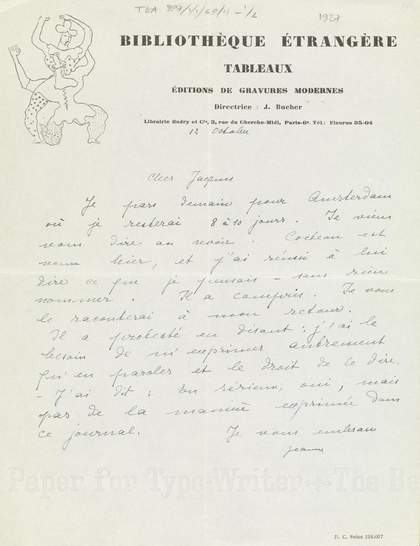 TGA 1927
BIBLIOTHÈQUE ÉTRANGÈRE
TABLEAUX
ÉDITIONS DE GRAVURES MODERNES
Directrice : J. Bucher
Librairie Budry et Cie, 3, rue du Cherche-Midi, Paris-6e. Tél.: Fleurus 35-04
12 Octobre
Cher Jacques
Je pars demain pour Amsterdam
où je resterai 8 à 10 jours. Je viens
vous dire au revoir. Cocteau est
venu hier, et j'ai réussi à lui
dire ce que je pensais - sans rien
nommer. Il a compris. Je vous
le raconterai à mon retour.
Il a protesté en disant : j'ai le
besoin de m'exprimer autrement
qu'en paroles et le droit de le dire.
- J'ai dit : En sérieux, oui, mais
pas de la manière exprimée dans
ce journal. Je vous embrasse
Jeanne
Paper for Type-Writer - The Be
R. C. Seine